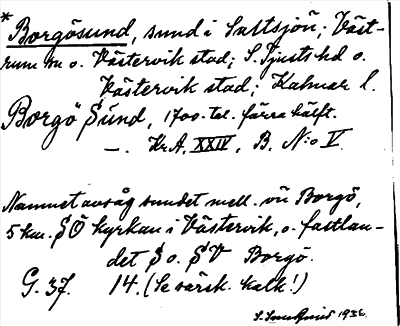 * Borgösund, sund i Saltsjön; Väst-
rum sn o. Västervik stad; S. Tjusts hd o.
Västervik stad; Kalmar l.
Borgö Sund, 1700-tal. förra hälft.
—. Kr.A. XXIV, B. N:o V.
Namnet avsåg sundet mell. ön Borgö,
5 km. SÖ kyrkan i Västervik, o. fastlan-
det S o. SV Borgö.
G. 37. 14. (Se särsk. kalk!)
1936.